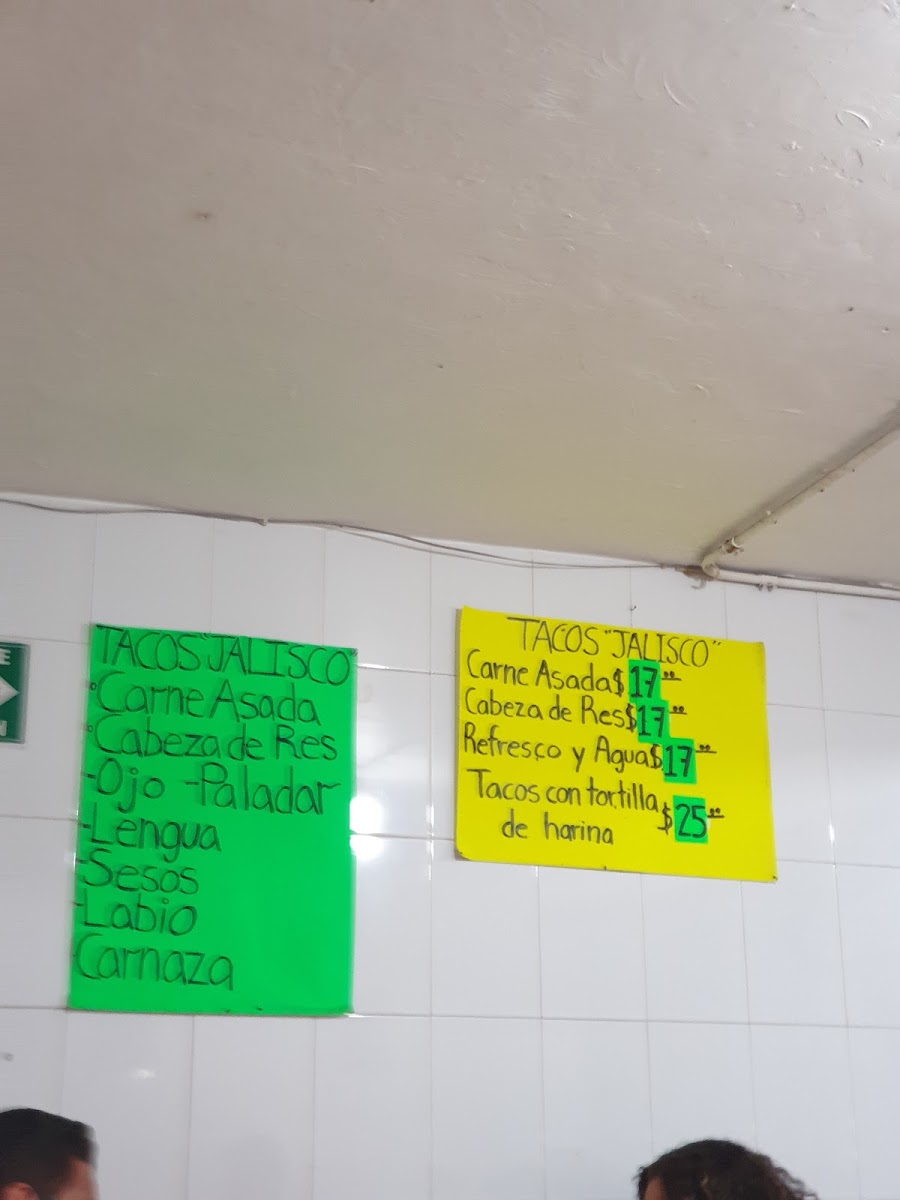 TACOS "JALISCO"
Carne Asada
Cabeza de Res
-Ojo -Paladar
-Lengua
-Sesos
-Labio
Carnaza
TACOS "JALISCO"
Carne Asada $17.00
Cabeza de Res $17.00
Refresco y Agua $17.00
Tacos con tortilla
de harina $25.00